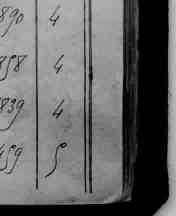 890 4
858 4
839 4
459 5